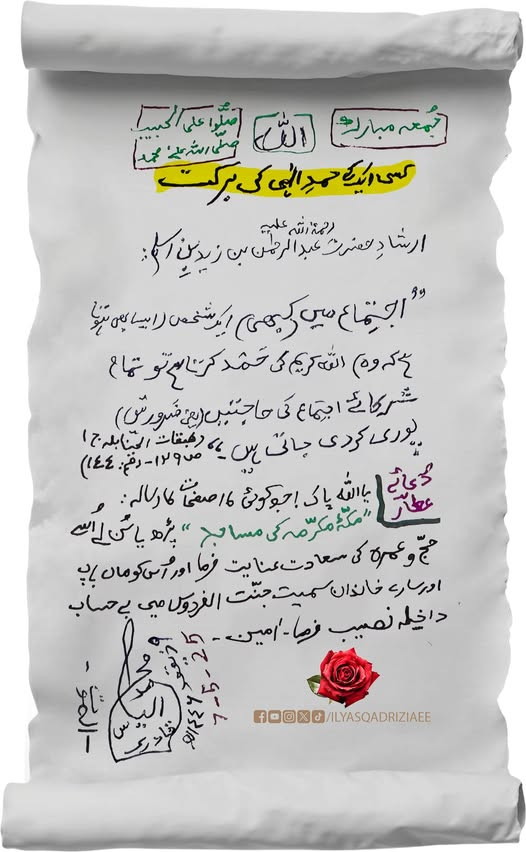 جُمعہ مبارک
اللہ
صَلُّوا علی الحبیب
صلَّی اللہ علیٰ محمد
کسی ایک کے حمدِ الٰہی کی برکت
ارشادِ حضرت عبدالرحمٰن بن زید بن اسلم رحمۃ اللہ علیہ:
"اجتماع میں (کبھی) ایک شخص (ایسا بھی ہوتا
ہے کہ وہ) اللہ کریم کی حَمْد کرتا ہے تو تمام
شرکائے اجتماع کی حاجتیں (یعنی ضرورتیں)
پوری کردی جاتی ہیں"
(طبقات الحنابلہ ج ۱
ص ۱۲۹ - رقم: ۱۴۴)
دُعائے عطار
یا اللہ پاک! جو کوئی ۱۷ صفحات کا رسالہ:
"مکّۂ مکرّمہ کی مساجد" پڑھ یا سُن لے اُسے
حج و عمرہ کی سعادت عنایت فرما اور اُس کو ماں باپ
اور سارے خاندان سمیت جنّت الفردوس میں بے حساب
داخلہ نصیب فرما۔ اٰمین۔
محمد الیاس قادری
۱۴۴۶ھ
7-5-25
/ILYASQADRIZIAEE